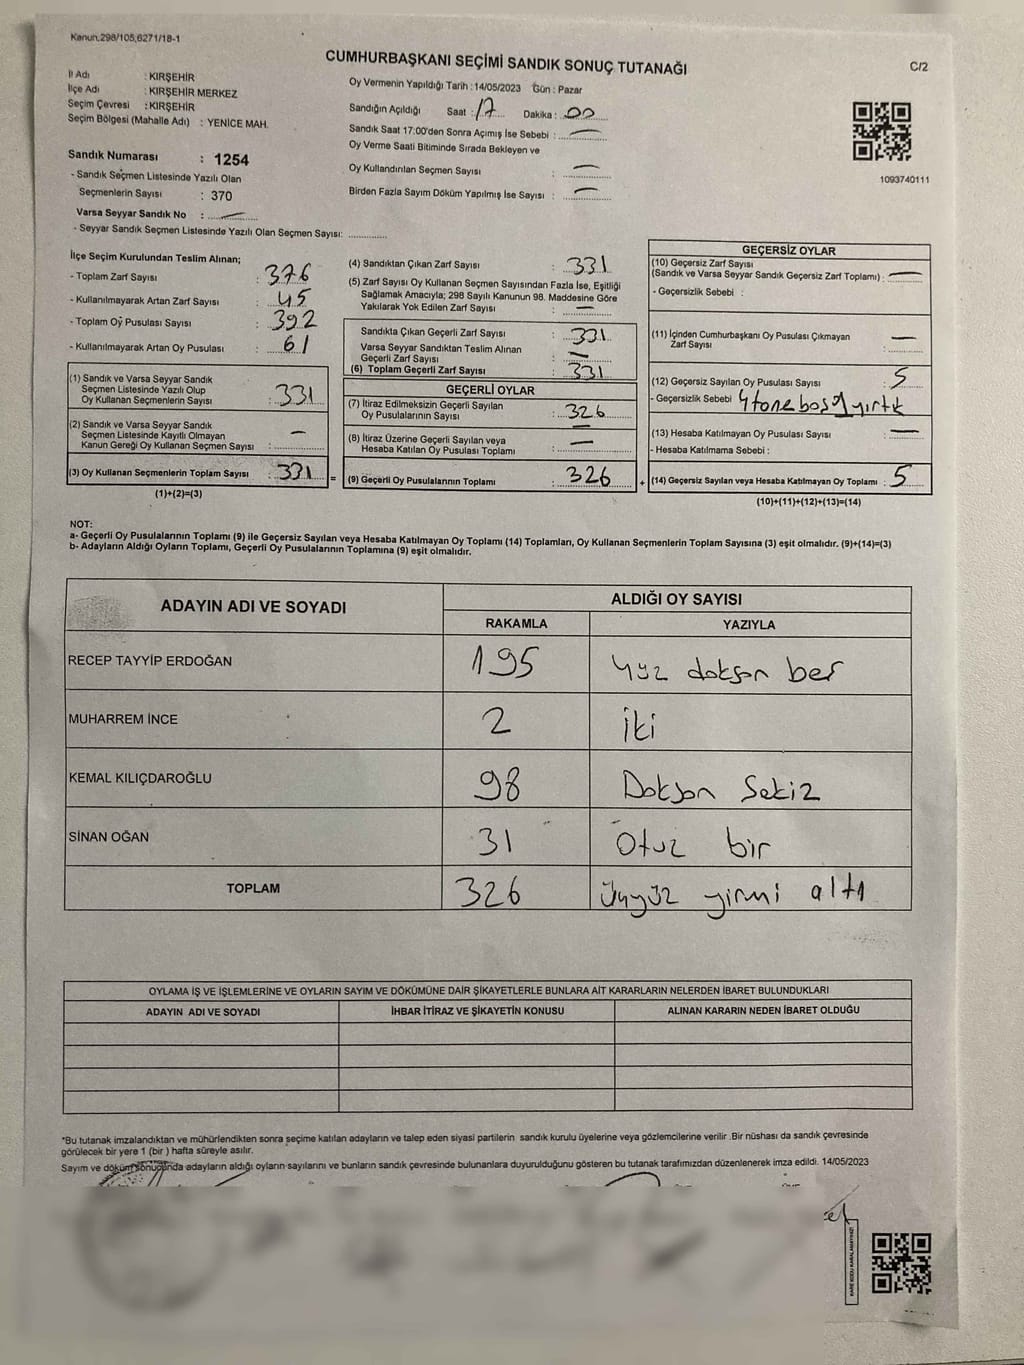 Kanun,298/105,6271/18-1
CUMHURBAŞKANI SEÇİMİ SANDIK SONUÇ TUTANAĞI
C/2
İl Adı : KIRŞEHİR
İlçe Adı : KIRŞEHİR MERKEZ
Seçim Çevresi : KIRŞEHİR
Seçim Bölgesi (Mahalle Adı) : YENİCE MAH.
Sandık Numarası : 1254
- Sandık Seçmen Listesinde Yazılı Olan
Seçmenlerin Sayısı : 370
Varsa Seyyar Sandık No : —
- Seyyar Sandık Seçmen Listesinde Yazılı Olan Seçmen Sayısı:
Oy Vermenin Yapıldığı Tarih : 14/05/2023 Gün : Pazar
Sandığın Açıldığı Saat : 17 Dakika : 00
Sandık Saat 17:00'den Sonra Açımış İse Sebebi : —
Oy Verme Saati Bitiminde Sırada Bekleyen ve
Oy Kullandırılan Seçmen Sayısı : —
Birden Fazla Sayım Döküm Yapılmış İse Sayısı : —
1093740111
İlçe Seçim Kurulundan Teslim Alınan;
- Toplam Zarf Sayısı : 376
- Kullanılmayarak Artan Zarf Sayısı : 45
- Toplam Oy Pusulası Sayısı : 392
- Kullanılmayarak Artan Oy Pusulası : 61
(1) Sandık ve Varsa Seyyar Sandık
Seçmen Listesinde Yazılı Olup
Oy Kullanan Seçmenlerin Sayısı : 331
(2) Sandık ve Varsa Seyyar Sandık
Seçmen Listesinde Kayıtlı Olmayan
Kanun Gereği Oy Kullanan Seçmen Sayısı : —
(3) Oy Kullanan Seçmenlerin Toplam Sayısı : 331 =
(1)+(2)=(3)
(4) Sandıktan Çıkan Zarf Sayısı : 331
(5) Zarf Sayısı Oy Kullanan Seçmen Sayısından Fazla İse, Eşitliği
Sağlamak Amacıyla; 298 Sayılı Kanunun 98. Maddesine Göre
Yakılarak Yok Edilen Zarf Sayısı : —
Sandıkta Çıkan Geçerli Zarf Sayısı : 331
Varsa Seyyar Sandıktan Teslim Alınan
Geçerli Zarf Sayısı : —
(6) Toplam Geçerli Zarf Sayısı : 331
GEÇERLİ OYLAR
(7) İtiraz Edilmeksizin Geçerli Sayılan
Oy Pusulalarının Sayısı : 326
(8) İtiraz Üzerine Geçerli Sayılan veya
Hesaba Katılan Oy Pusulası Toplamı : —
(9) Geçerli Oy Pusulalarının Toplamı : 326 +
GEÇERSİZ OYLAR
(10) Geçersiz Zarf Sayısı
(Sandık ve Varsa Seyyar Sandık Geçersiz Zarf Toplamı) : —
- Geçersizlik Sebebi :
(11) İçinden Cumhurbaşkanı Oy Pusulası Çıkmayan
Zarf Sayısı : —
(12) Geçersiz Sayılan Oy Pusulası Sayısı : 5
- Geçersizlik Sebebi 4 tane boş yırtık
(13) Hesaba Katılmayan Oy Pusulası Sayısı : —
- Hesaba Katılmama Sebebi :
(14) Geçersiz Sayılan veya Hesaba Katılmayan Oy Toplamı : 5
(10)+(11)+(12)+(13)=(14)
NOT:
a- Geçerli Oy Pusulalarının Toplamı (9) ile Geçersiz Sayılan veya Hesaba Katılmayan Oy Toplamı (14) Toplamları, Oy Kullanan Seçmenlerin Toplam Sayısına (3) eşit olmalıdır. (9)+(14)=(3)
b- Adayların Aldığı Oyların Toplamı, Geçerli Oy Pusulalarının Toplamına (9) eşit olmalıdır.
ADAYIN ADI VE SOYADI
ALDIĞI OY SAYISI
RAKAMLA YAZIYLA
RECEP TAYYİP ERDOĞAN 195 Yüz doksan beş
MUHARREM İNCE 2 İki
KEMAL KILIÇDAROĞLU 98 Doksan Sekiz
SİNAN OĞAN 31 Otuz bir
TOPLAM 326 Üçyüz yirmi altı
OYLAMA İŞ VE İŞLEMLERİNE VE OYLARIN SAYIM VE DÖKÜMÜNE DAİR ŞİKAYETLERLE BUNLARA AİT KARARLARIN NELERDEN İBARET BULUNDUKLARI
ADAYIN ADI VE SOYADI İHBAR İTİRAZ VE ŞİKAYETİN KONUSU ALINAN KARARIN NEDEN İBARET OLDUĞU
*Bu tutanak imzalandıktan ve mühürlendikten sonra seçime katılan adayların ve talep eden siyasi partilerin sandık kurulu üyelerine veya gözlemcilerine verilir .Bir nüshası da sandık çevresinde
görülecek bir yere 1 (bir ) hafta süreyle asılır.
Sayım ve döküm sonucunda adayların aldığı oyların sayılarını ve bunların sandık çevresinde bulunanlara duyurulduğunu gösteren bu tutanak tarafımızdan düzenlenerek imza edildi. 14/05/2023
KARE KODU KARALAMAYINIZ!